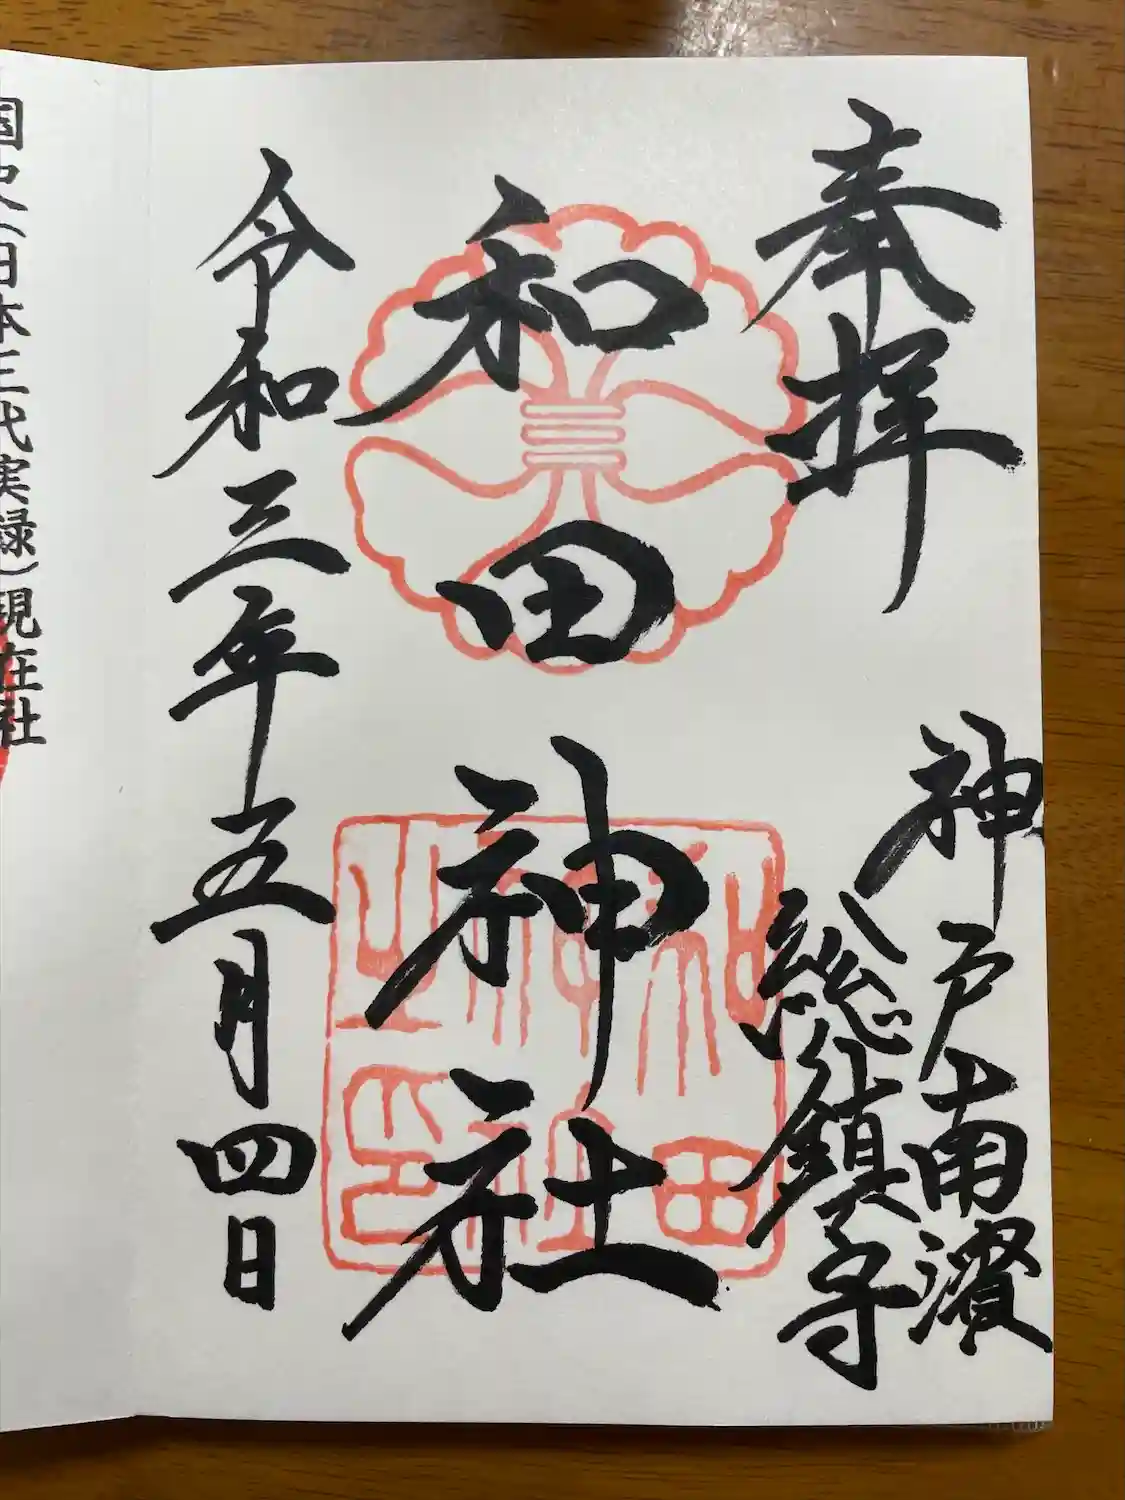 奉拝
神戸南濵
総鎮守
和田神社
和田
神社
之印
令和三年五月四日
国史(日本三代実録)現在社